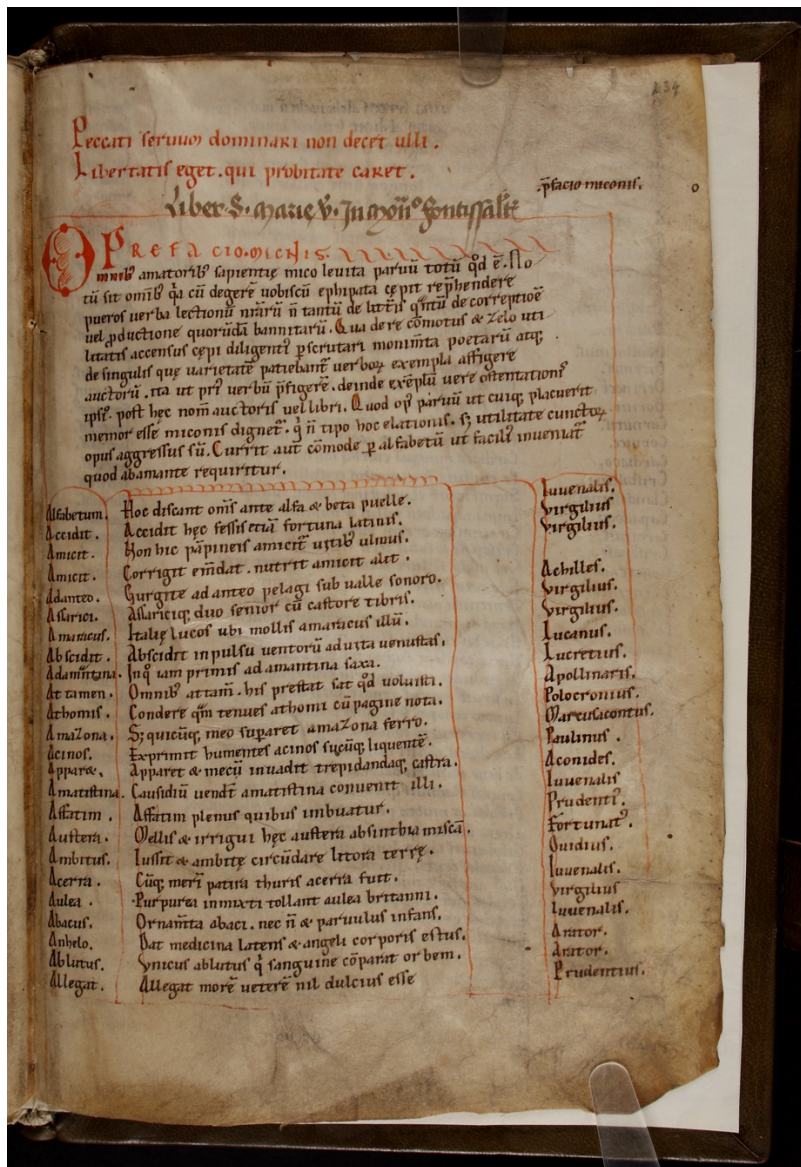 234
Peccati seruum dominari non decet ulli.
Libertatis eget. qui probitate caret.
p̄facio miconis.
Liber S. Marie V. In
PREFACIO. MICNIS.
Omnib; amatorib; sapientię mico leuita paruū totū qd ē. No
tū sit omīb; qa cū degerē uobiscū ephipata cępit rephendere
pueros uerba lectionū nr̄arū n̄ tantū de litt̄is qntū de correptioē
uel pductione quorūdā bannitarū. Qua de re cōmotus & zelo uti
litatis accensus cępi diligent pscrutari monim̄ta poetarū atq;
de singulis quę uarietatē patiebant uerboꝝ exempla affigere
auctorū. ita ut pri uerbū p̄figerē. deinde exēplū uere ostentationis
ipsi. post hęc nom̄ auctoris uel libri. Quod op paruū ut cuiq; placuerit
memor esse miconis dignet. q n̄ tipo hoc elationis. s; utilitate cunctoꝝ
opus aggressus sū. Currit aut cōmode p alfabetū ut facili inueniat
quod ab amante requiritur.
Alfabetum. Hoc discant om̄s ante alfa & beta puelle. Iuuenalis.
Accidit. Accidit hęc fessis etiā fortuna latinis. Virgilius
Amicit. Non hic pāpineis amicit uitib; ulmus. Virgilius.
Amicit. Corrigit em̄dat. nutrit amicit alit.
Adanteo. Gurgite ad anteo pelagi sub ualle sonoro. Achilles.
Assarici. Assariciq; duo senior cū castore tibris. Virgilius.
Amaracus. Italię lucos ubi mollis amaracus illū. Virgilius.
Abscidit. Abscidit inpulsu uentorū adiuta uenustas. Lucanus.
Adamantina. Inq; iam primis adamantina saxa. Lucretius.
At tamen. Omnib; attam̄. his prestat sat qd uoluisti. Apollinaris.
Athomis. Condere qm tenues athomi cū pagine nota. Polocronius.
Amazona. S; quicūq; meo superet amazona ferro. Marcusacontus.
Acinos. Exprimit humentes acinos sucūq; liquentē. Paulinus.
Apparet. Apparet & mecū inuadit trepidandaq; castra. Aconides.
Amatistina. Causidiū uendt amatistina conuenit illi. Iuuenalis
Affatim. Affatim plenus quibus imbuatur. Prudenti.
Austera. Mellis & irrigui hęc austera absinthia miscā. Fortunat.
Ambitus. Iussit & ambitę circūdare litora terrę. Ouidius.
Acerra. Cūq; meri patira thuris acerra fuit. Iuuenalis.
Aulea. Purpurea inmixti tollant aulea britanni. Virgilius
Abacus. Ornam̄ta abaci. nec n̄ & paruulus infans. Iuuenalis.
Anhelo. Dat medicina latens & angeli corporis estus. Arator.
Ablutus. Vnicus ablutus q sanguine cōparat orbem. Arator.
Allegat. Allegat morē ueterē nil dulcius esse Prudentius.